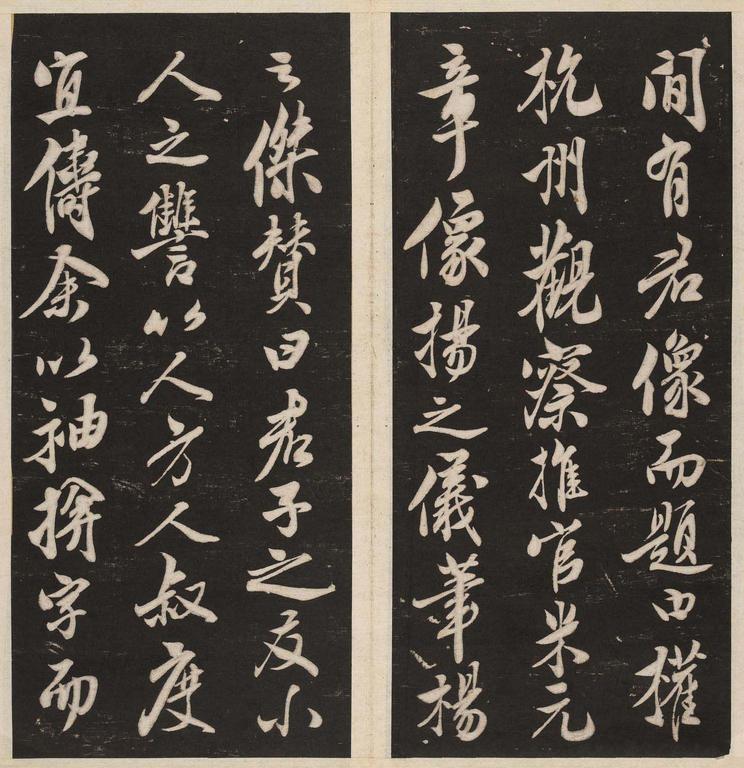 間有君像而題曰權
杭州觀察推官米元
章像揚之儀筆楊
之傑贊曰君子之友小
人之讐以人方人叔度
宜儔余以袖拚字而